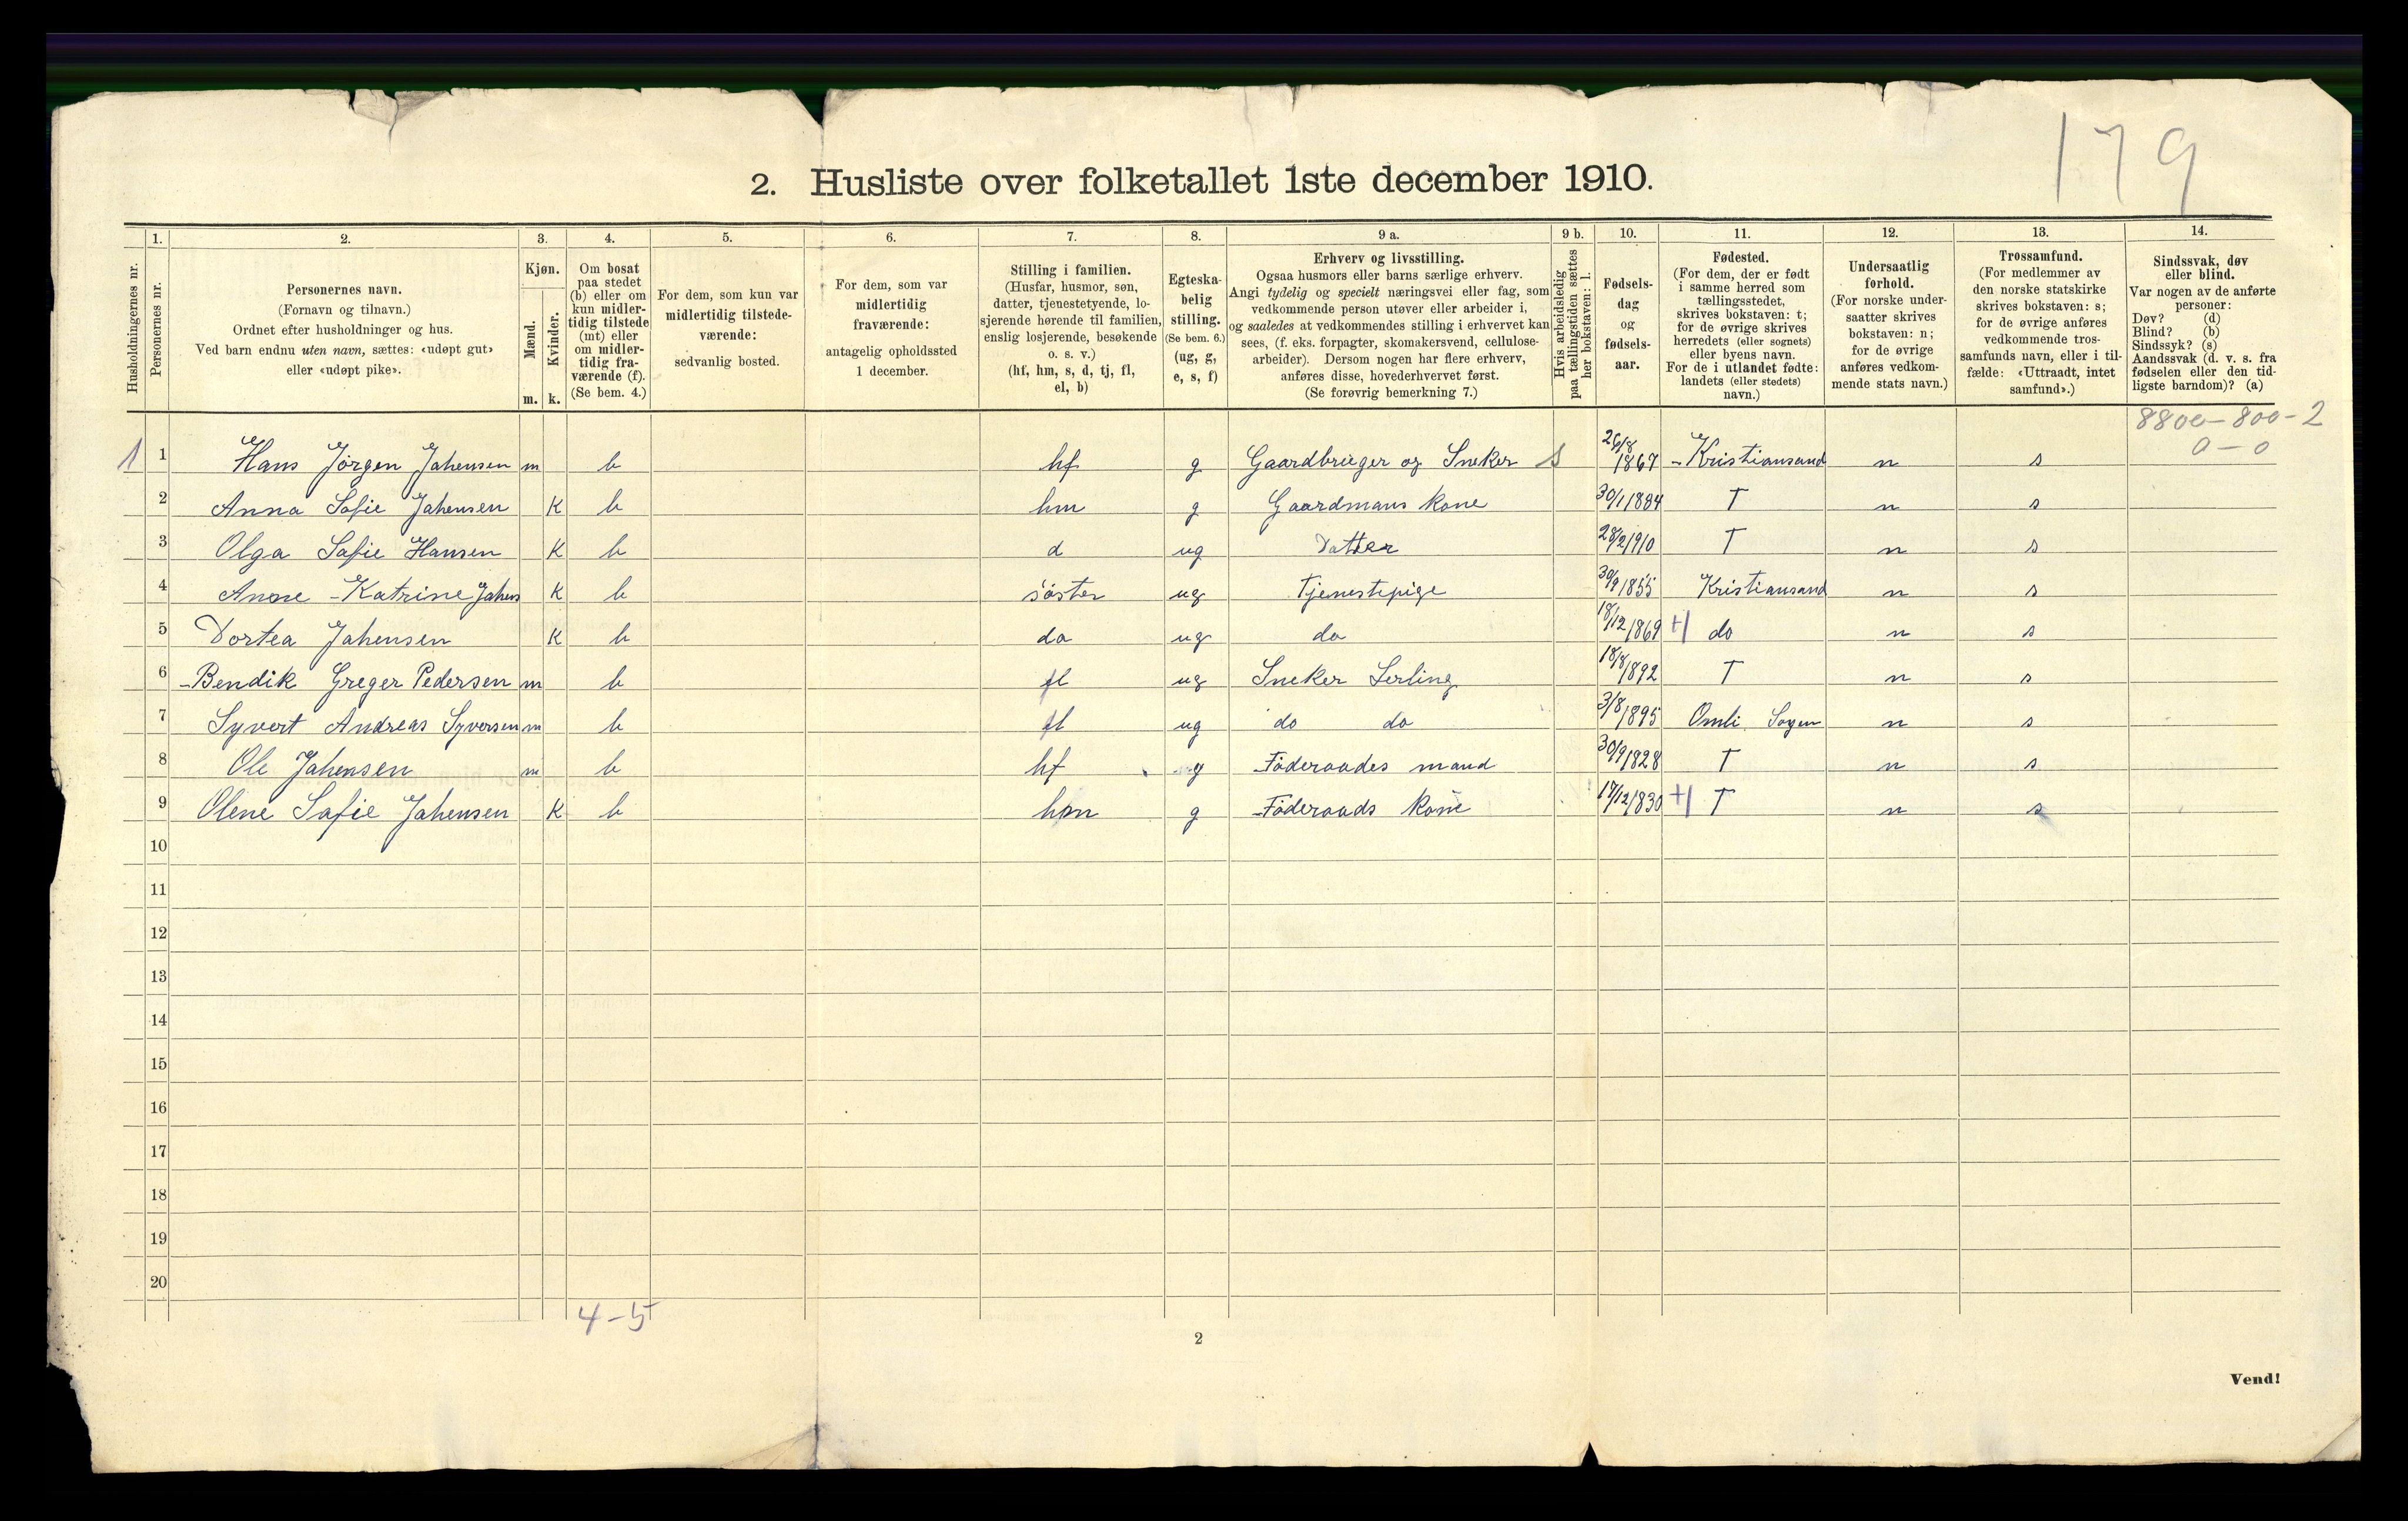 179
2. Husliste over folketallet 1ste december 1910.
Husholdningernes nr.
1.
Personernes nr.
2.
Personernes navn.
(Fornavn og tilnavn.)
Ordnet efter husholdninger og hus.
Ved barn endnu uten navn, sættes: «udøpt gut»
eller «udøpt pike».
3.
Kjøn.
Mænd.
Kvinder.
m. k.
4.
Om bosat
paa stedet
(b) eller om
kun midler-
tidig tilstede
(mt) eller
om midler-
tidig fra-
værende (f).
(Se bem. 4.)
5.
For dem, som kun var
midlertidig tilstede-
værende:
sedvanlig bosted.
6.
For dem, som var
midlertidig
fraværende:
antagelig opholdssted
1 december.
7.
Stilling i familien.
(Husfar, husmor, søn,
datter, tjenestetyende, lo-
sjerende hørende til familien,
enslig losjerende, besøkende
o. s. v.)
(hf, hm, s, d, tj, fl,
el, b)
8.
Egteska-
belig
stilling.
(Se bem. 6.)
(ug, g,
e, s, f)
9 a.
Erhverv og livsstilling.
Ogsaa husmors eller barns særlige erhverv.
Angi tydelig og specielt næringsvei eller fag, som
vedkommende person utøver eller arbeider i,
og saaledes at vedkommendes stilling i erhvervet kan
sees, (f. eks. forpagter, skomakersvend, cellulose-
arbeider). Dersom nogen har flere erhverv,
anføres disse, hovederhvervet først.
(Se forøvrig bemerkning 7.)
9 b.
Hvis arbeidsledig
paa tællingstiden sættes
her bokstaven: l.
10.
Fødsels-
dag
og
fødsels-
aar.
11.
Fødested.
(For dem, der er født
i samme herred som
tællingsstedet,
skrives bokstaven: t;
for de øvrige skrives
herredets (eller sognets)
eller byens navn.
For de i utlandet fødte:
landets (eller stedets)
navn.)
12.
Undersaatlig
forhold.
(For norske under-
saatter skrives
bokstaven: n;
for de øvrige
anføres vedkom-
mende stats navn.)
13.
Trossamfund.
(For medlemmer av
den norske statskirke
skrives bokstaven: s;
for de øvrige anføres
vedkommende tros-
samfunds navn, eller i til-
fælde: «Uttraadt, intet
samfund».)
14.
Sindssvak, døv
eller blind.
Var nogen av de anførte
personer:
Døv? (d)
Blind? (b)
Sindssyk? (s)
Aandssvak (d. v. s. fra
fødselen eller den tid-
ligste barndom)? (a)
8800-800-2
0-0
1 1 Hans Jørgen Jahensen m b hf g Gaardbruger og Sneker S 26/8 1867 - Kristiansand n s
2 Anna Sofie Jahensen K b hm g Gaardmans kone 30/1 1884 T n s
3 Olga Sofie Hansen K b d ug Datter 28/2 1910 T n s
4 Anne - Katrine Jahens K b søster ug Tjenestepige 30/9 1855 Kristiansand n s
5 Dortea Jahensen K b do ug do 18/12 1869 +| do n s
6 - Bendik Greger Pedersen m b fl ug Sneker Lerling 18/8 1892 T n s
7 Syvert Andreas Syversen m b fl ug do do 3/8 1895 Omli Sogen n s
8 Ole Jahensen m b hf g Føderaades mand 30/9 1828 T n s
9 Olene Sofie Jahensen K b hm g Føderaads kone 17/12 1830 +| T n s
10
11
12
13
14
15
16
17
18
19
20
4-5
2
Vend!